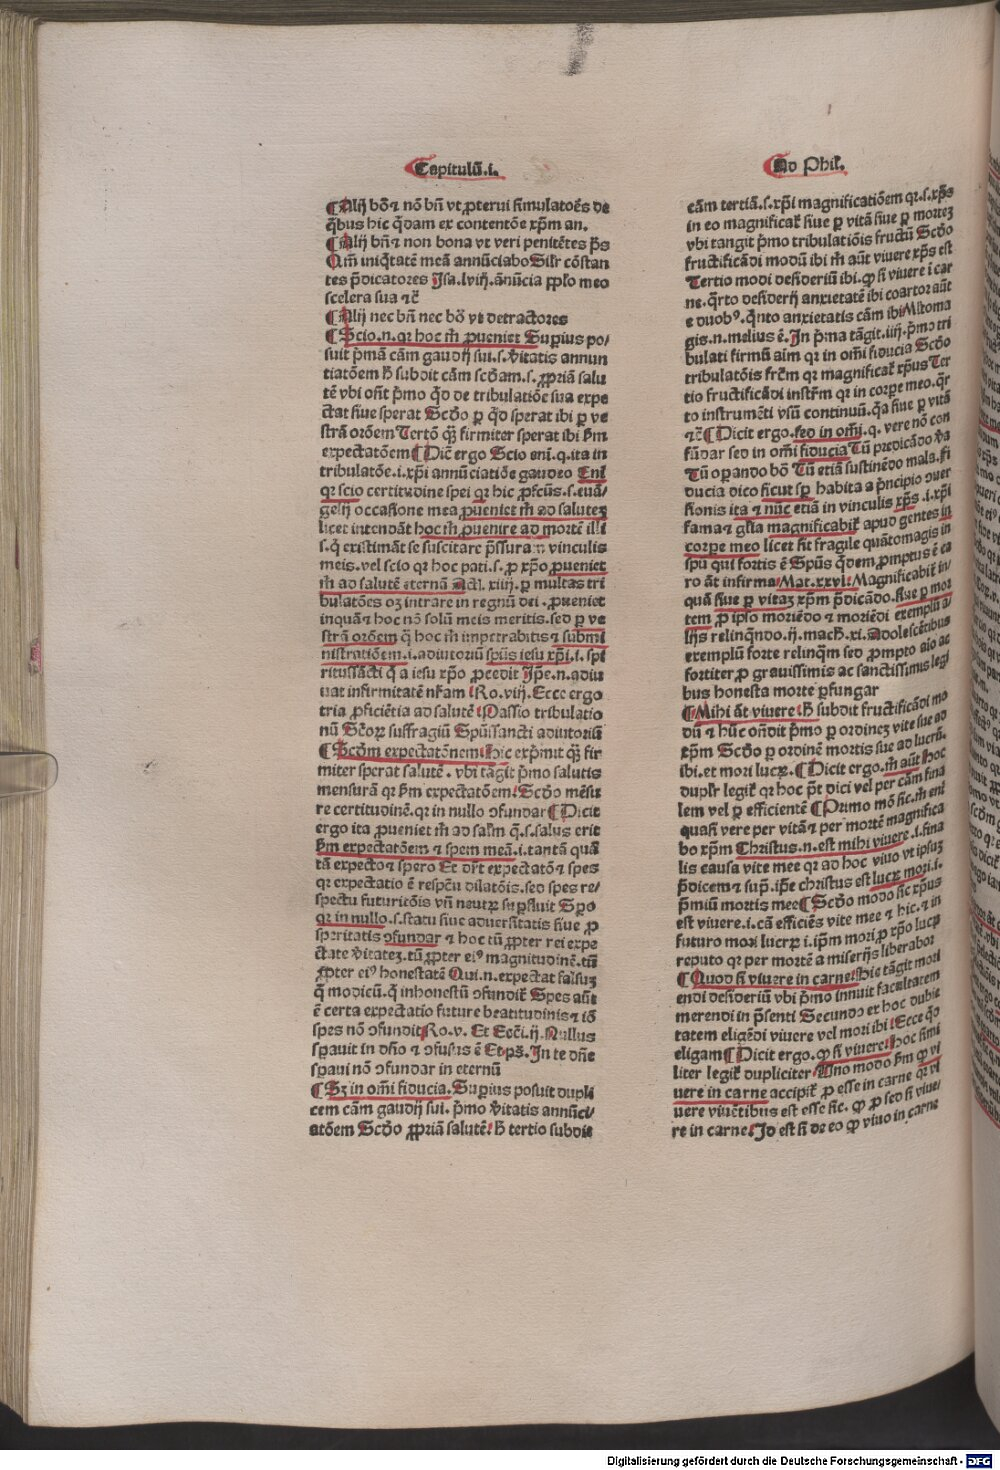 Capitulū.i.
¶Alij bōꝫ nō bñ vt ꝓterui simulatoēs de
q̄bus hic q̄dam ex contentōe xp̄m an.
¶Alij bñꝫ non bona vt veri penitētes p̄s
Qm̄ iniq̄tatē meā annūciabo Silr cōstan
tes p̄dicatores Isa.lviij.ānūcia pp̄lo meo
scelera sua ⁊c̄
¶Alij nec bñ nec bō vt detractores
¶Scio.n.qꝛ hoc m̄ ꝓueniet Supius po/
suit p̄mā cām gaudij sui.s.v̄itatis annun
tiatōem h̄ subdit cām scd̄am.s.ꝓpriā salu
tē vbi oñt p̄mo q̄d de tribulatiōe sua expe
ctat siue sperat Scd̄o ꝑ q̄d sperat ibi ꝑ ve
strā orōem Tertō qꝫ firmiter sperat ibi ẜm
expectatōem ¶Dic̄ ergo Scio enī.q.ita in
tribulatōe.i.xp̄i annūciatiōe gaudeo Enī
qꝛ scio certitudine spei qꝛ hic ꝓfcūs.s.euā/
gelij occasione mea ꝓueniet m̄ ad salutez
licet intendāt hoc m̄ ꝓuenire ad mortē illi
s.q̄ existimāt se suscitare p̄ssura n vinculis
meis.vel scio qꝛ hoc pati.s.ꝓ xp̄o ꝓueniet
m̄ ad salutē eternā Act.xiiij.ꝑ multas tri
bulatōes oꝫ intrare in regnū dei.ꝓueniet
inquā ⁊ hoc nō solū meis meritis.sed ꝑ ve
strā orōem q̄ hoc m̄ impetrabitis ⁊ submi
nistratiōem.i.adiutoriū sp̄us iesu xp̄i.i.spi
ritussācti q̄ a iesu xp̄o ꝓcedit Ip̄e.n.adiu
uat infirmitatē nr̄am Ro.viij. Ecce ergo
tria ꝓficiētia ad salutē Passio tribulatio
nū Sctoꝝ suffragiū Spūssancti adiutoriū
¶Scd̄m expectatōnem Hic exp̄mit qꝫ fir
miter sperat salutē.vbi tāgit p̄mo salutis
mensurā qꝛ ẜm expectatōem Scd̄o mēsu
re certitudinē.qꝛ in nullo ↄfundar ¶Dicit
ergo ita ꝓueniet m̄ ad salm q̄.s.salus erit
ẜm expectatōem ⁊ spem meā.i.tantā quā
tā expecto ⁊ spero Et dr̄t expectatō ⁊ spes
qꝛ expectatio ē respcū dilatōis.sed spes re/
spectu futuritōis vñ neutꝝ supfluit Spo
qꝛ in nullo.s.statu siue aduersitatis siue ꝓ
speritatis ↄfundar ⁊ hoc tū ꝓpter rei expe
ctate v̄itatez.tū ꝓpter eiꝰ magnitudinē.tū
ꝓpter eiꝰ honestatē Qui.n.expectat falsuꝫ
q̄ modicū.q̄ inhonestū ↄfundit Spes aūt
ē certa expectatio future beatitudinis ⁊ iō
spes nō ↄfundit Ro.v. Et Ecci.ij.Nullus
spauit in dño ⁊ ↄfusus ē Et ps. In te dn̄e
spaui nō ↄfundar in eternū
¶Sꝫ in om̄i fiducia. Supius posuit dupli
cem cām gaudij sui. p̄mo v̄itatis annūci/
atōem Scd̄o ꝓpriā salutē h̄ tertio subdit
Ad Phil.
cām tertiā.s.xp̄i magnificatiōem qꝛ.s.xp̄s
in eo magnificat siue ꝑ vitā siue ꝑ morteꝫ
vbi tangit p̄mo tribulatiōis fructū Scd̄o
fructificādi modū ibi m̄ aūt viuere xp̄s est
Tertio modi desideriū ibi.ꝙ si viuere i car
ne.q̄rto desiderij anxietatē ibi coartor aūt
e duobꝰ.q̄nto anxietatis cām ibi Mltoma
gis.n.melius ē. In p̄ma tāgit.iiij.p̄mo tri
bulati firmū aim qꝛ in om̄i fiducia Scd̄o
tribulatōis frc̄m qꝛ magnificat xp̄us Ter
tio fructificādi instr̄m qꝛ in corpe meo.q̄r
to instrumēti vsū continuū.q̄a siue ꝑ vitā
⁊c̄ ¶Dicit ergo.sed in om̄i.q.vere nō con
fūdar sed in om̄i fiducia Tū predicādo v̄a
Tū opando bō Tū etiā sustinēdo mala.fi
ducia dico sicut sp habita a p̄ncipio ↄuer
sionis ita ⁊ nūc etiā in vinculis xp̄s.i.xp̄i
fama ⁊ gl̄ia magnificabit apud gentes in
corpe meo licet sit fragile quātomagis in
spū qui fortis ē Sp̄us q̄dem ꝓmptus ē ca
ro āt infirma Mat.xxvi. Magnificabit in/
quā siue ꝑ vitaꝫ xp̄m p̄dicādo.siue ꝑ mor
tem ꝓ ip̄so moriēdo ⁊ moriēdi exemplū a/
lijs relinqn̄do.ij.mach.xi.Adolescētibus
exemplū forte relinqm̄ sed ꝓmpto aio ac
fortiter ꝓ grauissimis ac sanctissimis legi
bus honesta morte ꝑfungar
¶Mihi āt viuere h̄ subdit fructificādi mo
dū ⁊ hūc oñdit p̄mo ꝑ ordineꝫ vite sue ad
xp̄m Scd̄o ꝑ ordinē mortis sue ad lucrū.
ibi.et mori lucꝝ. ¶Dicit ergo.m̄ aūt hoc
duplr̄ legit qꝛ hoc p̄t dici vel per cām fina
lem vel ꝑ efficientē ¶Primo mō sic.m̄ eni
quasi vere per vitā ⁊ per mortē magnifica
bo xp̄m Christus.n.est mihi viuere.i.fina
lis causa vite mee qꝛ ad hoc viuo vt ipsuꝫ
p̄dicem ⁊ sup̄.ip̄e christus est lucꝝ mori.i.
p̄miū mortis mee ¶Scd̄o modo sic xp̄us
est viuere.i.cā efficiēs vite mee ⁊ hic.⁊ in
futuro mori lucꝝ i.ip̄m mori ꝓ xp̄o lucꝝ
reputo qꝛ per mortē a miserijs liberabor
¶Quod si viuere in carne hic tāgit mori
endi desideriū vbi p̄mo innuit facultatem
merendi in p̄senti Secundo et hoc dubie
tatem eligēdi viuere vel mori ibi Ecce q̄d
eligam ¶Dicit ergo.ꝙ si viuere hoc simi
liter legit dupliciter Uno modo ẜm ꝙ vi
uere in carne accipit ꝓ esse in carne qꝛ vi
uere viuētibus est esse sic.ꝙ ꝓ sed si viue/
re in carne Id est si de eo ꝙ viuo in carne
Digitalisierung gefördert durch die Deutsche Forschungsgemeinschaft - DFG